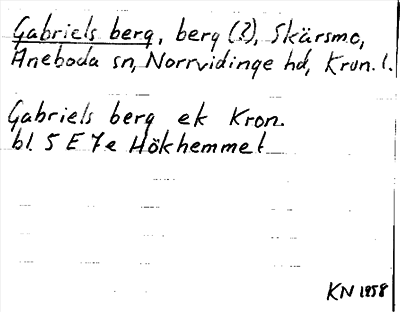 Gabriels berg, berg (?), Skärsmo,
Aneboda sn, Norrvidinge hd, Kron. l.
Gabriels berg ek Kron.
bl. 5 E 7e Hökhemmet
KN 1958